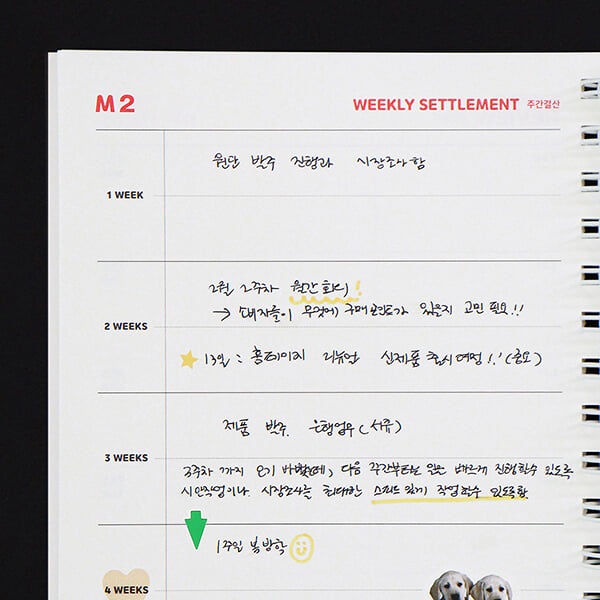 M2
WEEKLY SETTLEMENT 주간결산
1 WEEK
원단 발주 진행과 시장조사함
2 WEEKS
2월 2주차 월간회의!
→ 소비자들이 무엇에 구매 포인트가 있을지 고민 필요!!
13일 : 홈페이지 리뉴얼 신제품 출시예정!! (중요)
3 WEEKS
제품 발주. 은행업무(서류)
3주차 까지 오기 바빴는데, 다음 주간부터는 일을 빠르게 진행할수 있도록
시안작업이나. 시장조사를 최대한 스피드 있게 작업할수 있도록함
1주일 봄방학
4 WEEKS